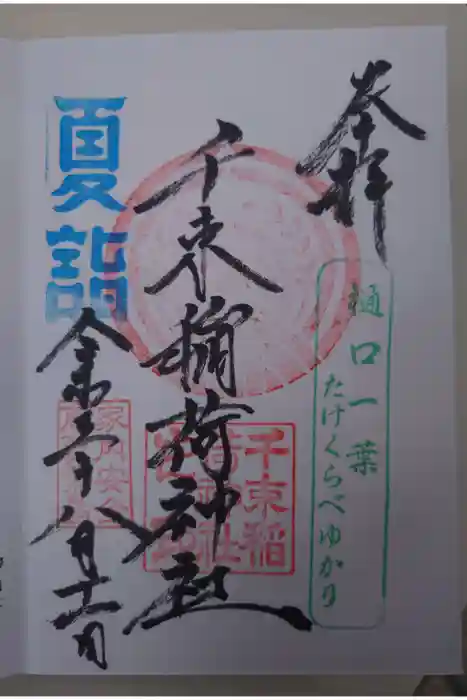 奉拝
樋口一葉
たけくらべゆかり
千束稲荷神社
千束稲
夏詣
令和三年八月十一日
家内安全